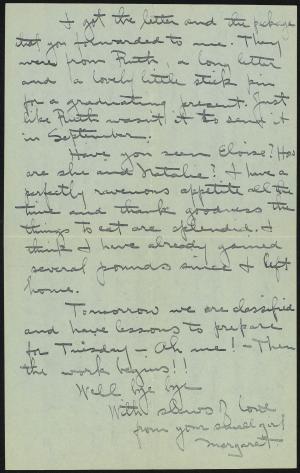 I got the letter and the package
that you forwarded to me. They
were from Ruth, a long letter
and a lovely little stick pin
for a graduating present. Just
like Ruth wasn't it to send it
in September.
Have you seen Eloise? How
are she and Natalie? I have a
perfectly ravenous appetite all the
time and thank goodness the
things to eat are splendid. I
think I have already gained
several pounds since I left
home.
Tomorrow we are classified
and have lessons to prepare
for Tuesday – Ah me! – Then
the work begins!!
Well bye bye
With slews of love
from your small girl
Margaret.